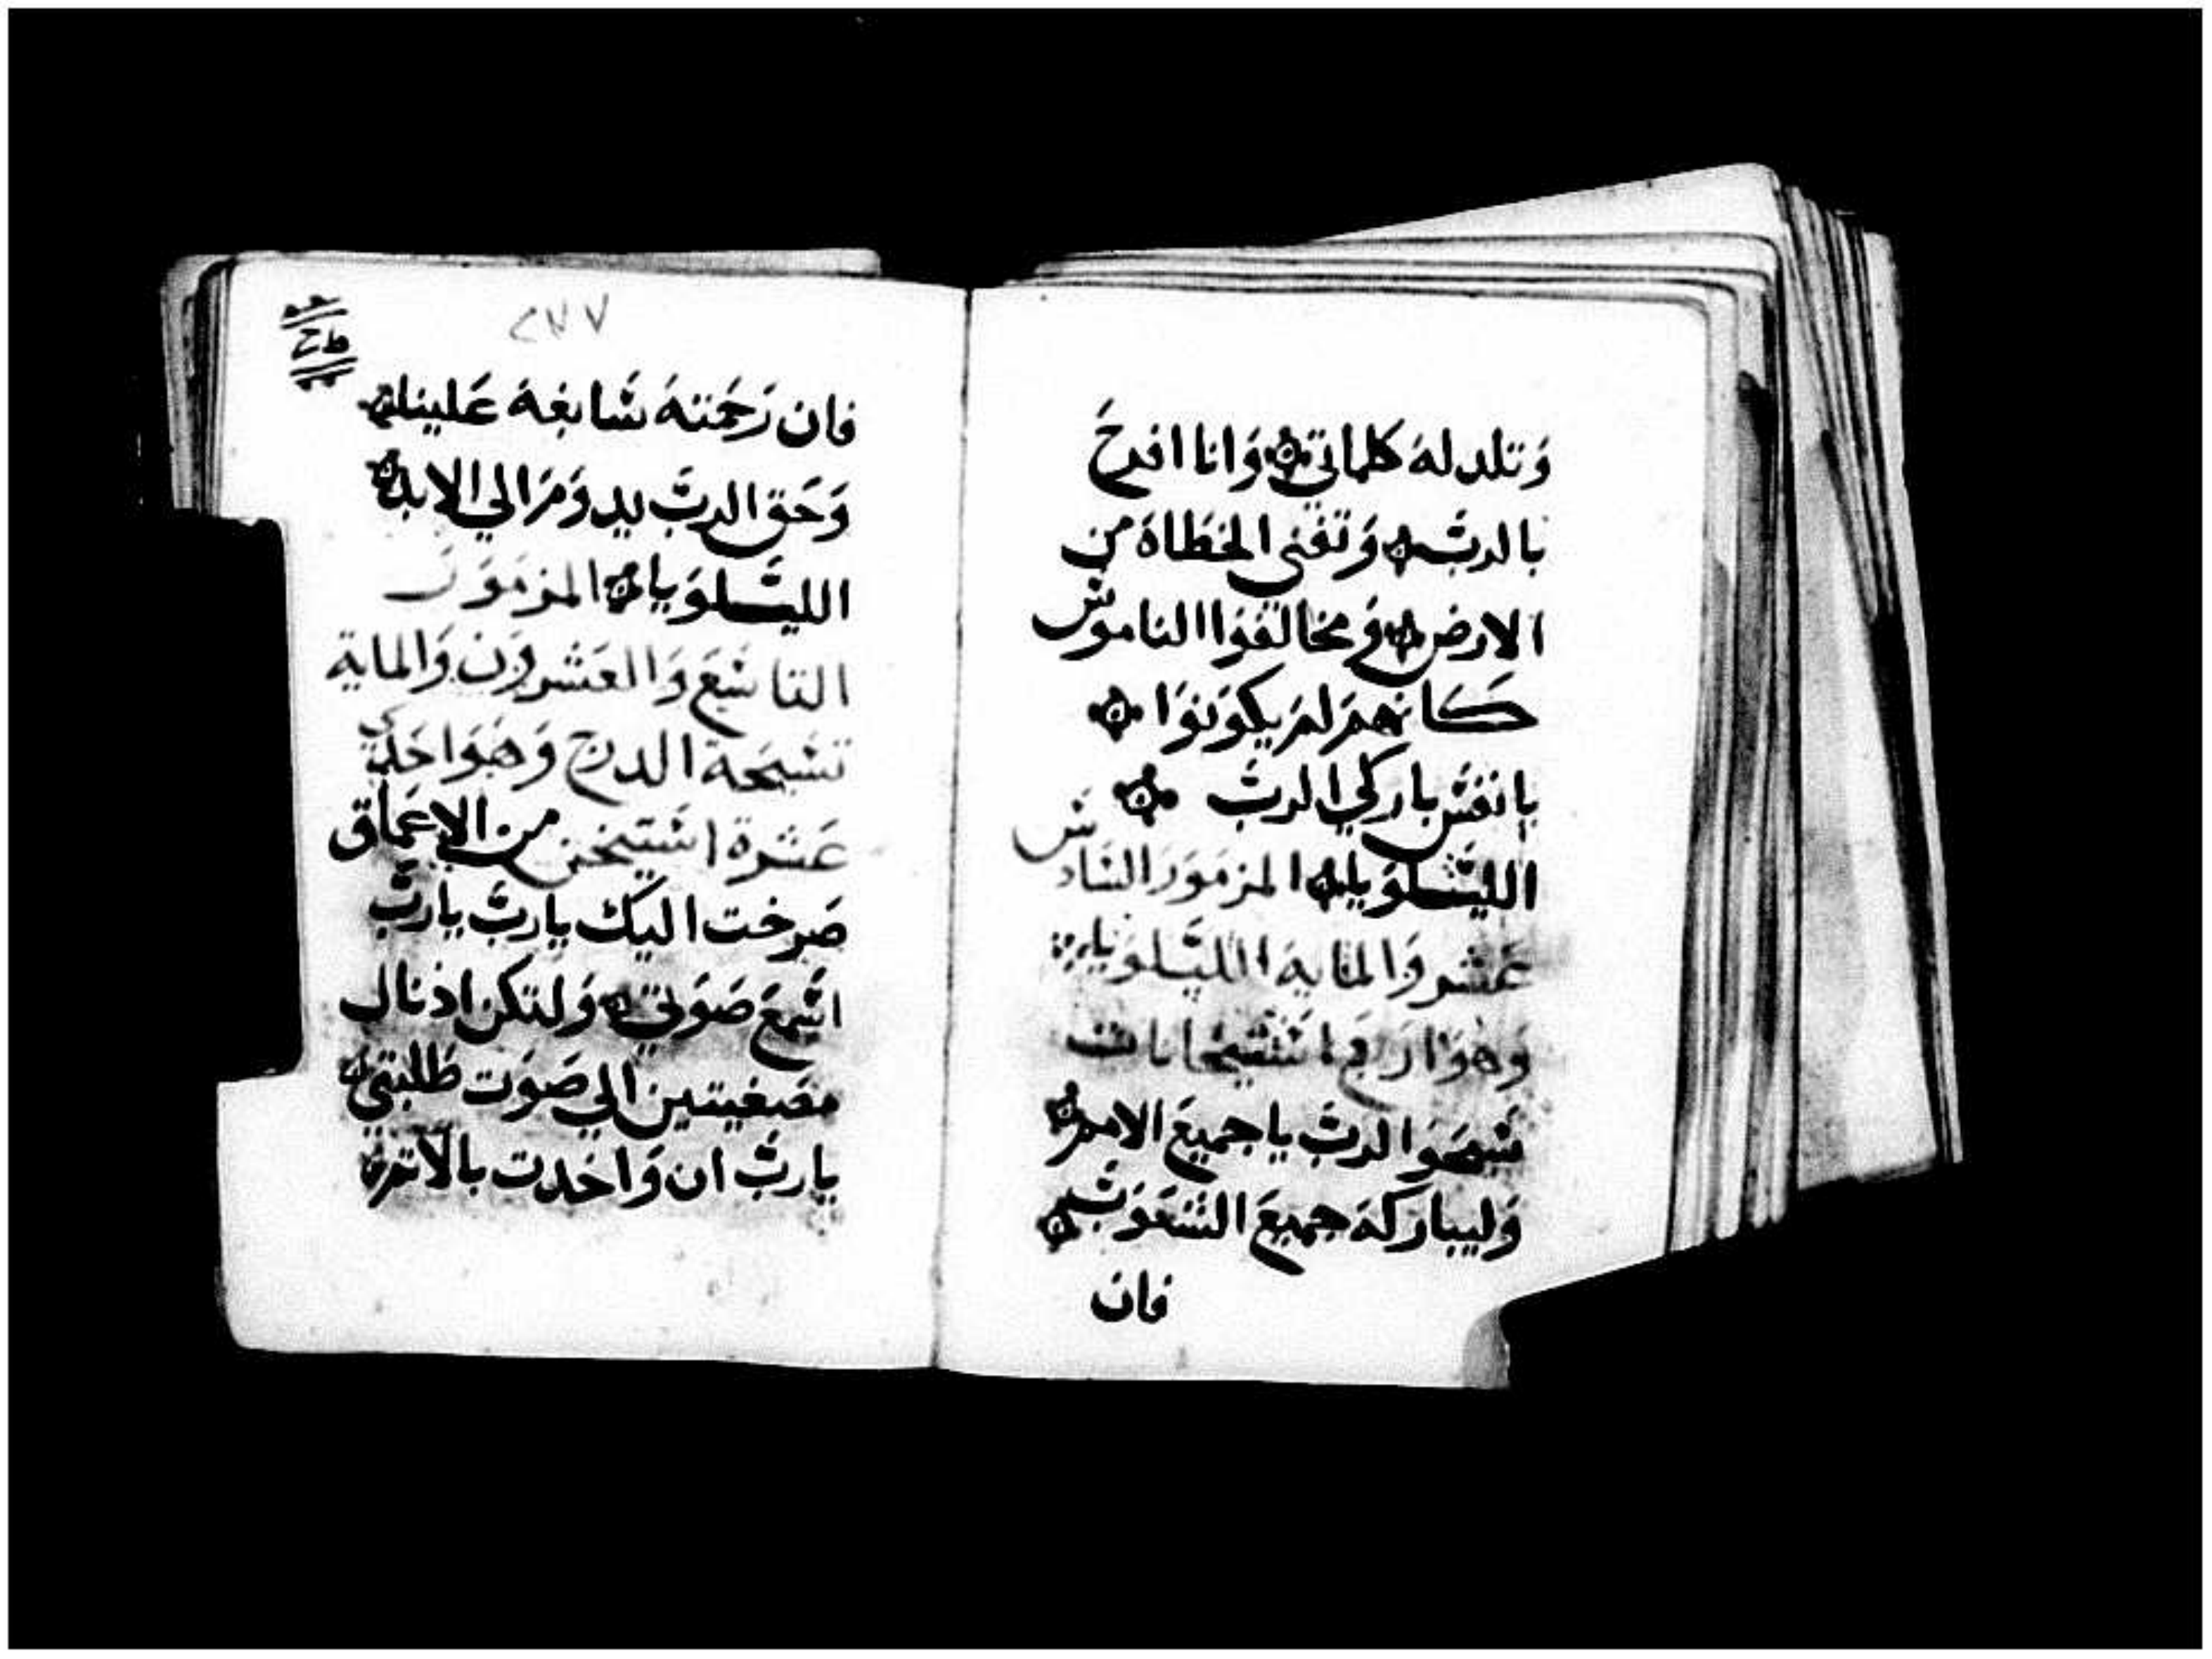 وَتلدله كلماتي وَانا افرحَ
بالربّ وَتفني الخطَاة من
الارض وَمخالفوَا الناموسَ
كانهم لم يكوَنوَا
يا نفسَ باركي الربّ
الليسَلوَيا المزموَر السَادسَ
عَشر وَالمايه الليسَلوَيا
وَهوَ اربع استيخانات
سَبحوَا الربّ يا جميعَ الامم
وَليباركه جميعَ الشعوَبَ
فان
٢٧٧
فان رَحمته سَابغة عَلينا
وَحق الربّ يدوَم الي الابد
الليسَلوَيا المزموَر
التاسَع وَالعَشروَن وَالماية
تسَبحة الدرج وَهوَ احَدي
عَشرة استيخن من الاعمَاق
صَرخت اليك يا ربّ يا ربّ
اسَمعَ صَوَتي وَلتكن اذناك
مصَغيتين الي صَوَت طَلبتي
يا ربّ ان وَاخدت بالاتم